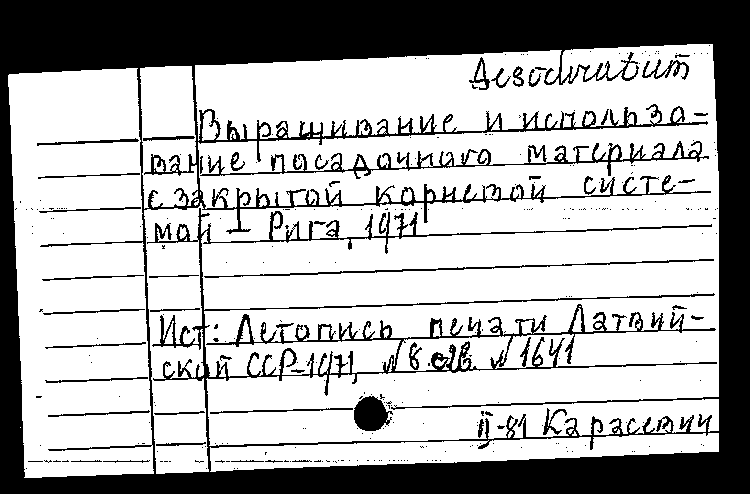 Desideratum
Выращивание и использо-
вание посадочного материала
с закрытой корневой систе-
мой – Рига, 1971
Ист: Летопись печати Латвий-
ской ССР-1971, № 8 № 1641
II-81 Карасевич